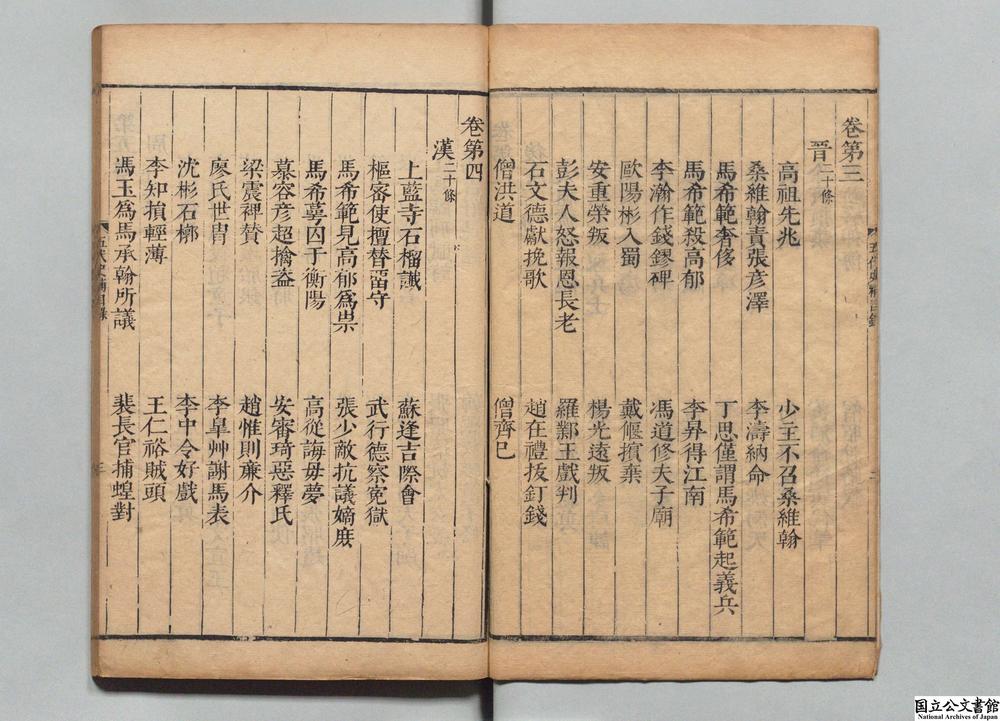 卷第三
晉二十條
高祖先兆　少主不召桑維翰
桑維翰責張彥澤　李濤納命
馬希範奢侈　丁思僅謂馬希範起義兵
馬希範殺高郁　李昇得江南
李瀚作錢鏐碑　馮道修夫子廟
歐陽彬入蜀　戴偃擯棄
安重榮叛　楊光遠叛
彭夫人怒報恩長老　羅鄴王戲判
石文德獻挽歌　趙在禮拔釘錢
僧洪道　僧齊已
卷第四
漢二十條
上藍寺石榴讖　蘇逢吉際會
樞密使擅替留守　武行德察冤獄
馬希範見高郁爲祟　張少敵抗議嫡庶
馬希萼囚于衡陽　高從誨毋夢
慕容彥超擒盜　安審琦惡釋氏
梁震裨賛　趙惟則廉介
廖氏世胄　李臯艸謝馬表
沈彬石槨　李中令好戲
李知損輕薄　王仁裕賊頭
馮玉爲馬承翰所議　裴長官捕蝗對
五代史補目錄
国立公文書館
National Archives of Japan